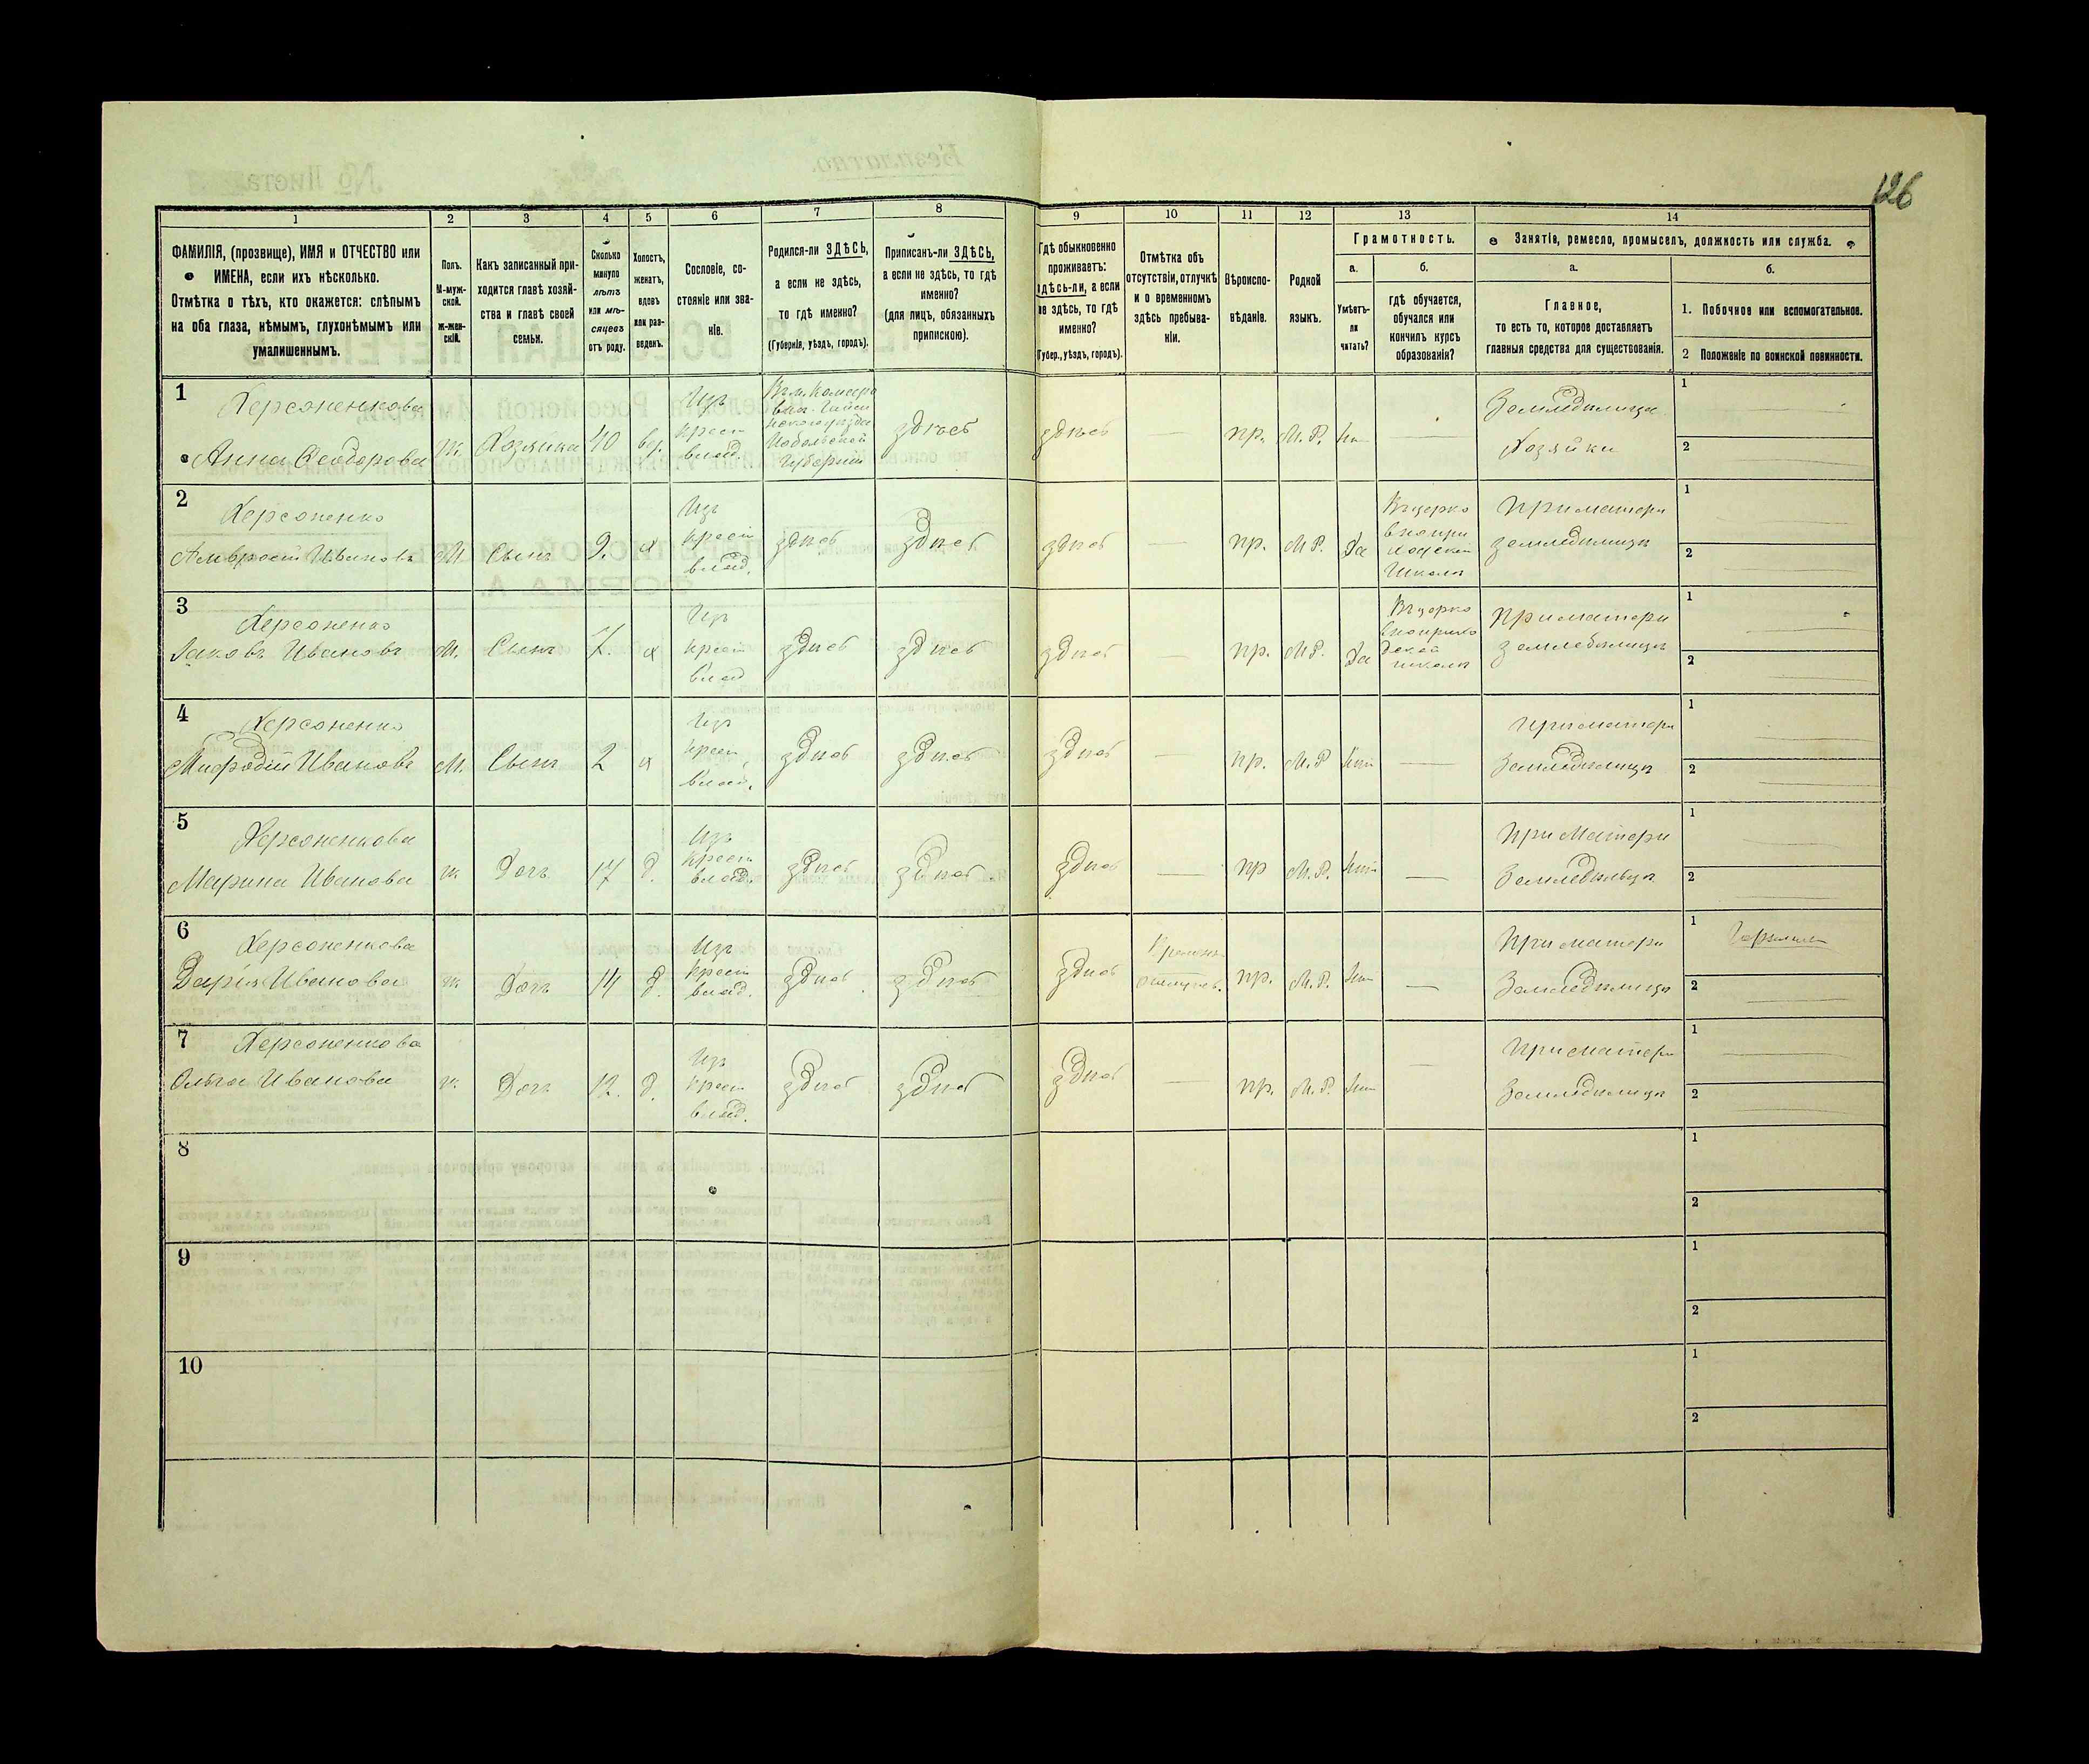 126
1 2 3 4 5 6 7 8 9 10 11 12 13 14
ФАМИЛІЯ, (прозвище), ИМЯ и ОТЧЕСТВО или
ИМЕНА, если ихъ нѣсколько.
Отмѣтка о тѣхъ, кто окажется: слѣпымъ
на оба глаза, нѣмымъ, глухонѣмымъ или
умалишеннымъ.
Полъ.
М-муж-
ской.
ж-жен-
скій.
Какъ записанный при-
ходится главѣ хозяй-
ства и главѣ своей
семьи.
Сколько
минуло
лѣтъ
или мѣ-
сяцевъ
отъ роду.
Холостъ,
женатъ,
вдовъ
или раз-
веденъ.
Сословіе, со-
стояніе или зва-
ніе.
Родился-ли ЗДѢСЬ,
а если не здѣсь,
то гдѣ именно?
(Губернія, уѣздъ, городъ).
Приписанъ-ли ЗДѢСЬ,
а если не здѣсь, то гдѣ
именно?
(для лицъ, обязанныхъ
припискою).
Гдѣ обыкновенно
проживаетъ:
здѣсь-ли, а если
не здѣсь, то гдѣ
именно?
(Губер., уѣздъ, городъ).
Отмѣтка объ
отсутствіи, отлучкѣ
и о временномъ
здѣсь пребыва-
ніи.
Вѣроиспо-
вѣданіе.
Родной
языкъ.
Грамотность.
а.
Умѣетъ-
ли
читать?
б.
гдѣ обучается,
обучался или
кончилъ курсъ
образованія?
Занятія, ремесло, промыселъ, должность или служба.
а.
Главное,
то есть то, которое доставляетъ
главныя средства для существованія.
б.
1. Побочное или вспомогательное.
2 Положеніе по воинской повинности.
1
Херсоненкова
Анна Ѳеодорова
ж. Хозяйка 40 вд.
Изъ
крест
влад.
Губерніи
здѣсь здѣсь — пр. М. Р. —
Хозяйки
1
2
2
Херсоненко
Амвросій Ивановъ
М. Сынъ 9. х
Изъ
крест
влад.
здѣсь здѣсь здѣсь — пр. М Р. Да
Въ церко
внопри
ходской
Школѣ
При матери
земледѣлица
1
2
3
Херсоненко
Іаковъ Ивановъ
М. Сынъ 7. х
Изъ
крест
влад
здѣсь здѣсь здѣсь — пр. М Р. Да
Въ церко
вноприхо
дской
школѣ
При матери
земледѣлица
1
2
4
Херсоненко
Мефодій Ивановъ
М. Сынъ 2 х
Изъ
крест
влад.
здѣсь здѣсь здѣсь — пр. М. Р —
При матери
Земледѣлица
1
2
5
Херсоненкова
Марина Ивановa
ж. Дочь 17 д.
Изъ
крест
влад.
здѣсь здѣсь здѣсь — пр М. Р. —
При Матери
1
2
6
Херсоненкова
Дарія Иванова
ж. Дочь 14 д.
Изъ
крест
влад.
здѣсь здѣсь здѣсь пр. М. Р. —
При матери
Земледѣлица
1
2
7
Херсоненкова
Ольга Иванова
ж. Дочь 12. д.
Изъ
крест
влад.
здѣсь здѣсь здѣсь — пр. М. Р —
При матери
Земледѣлица
1
2
8
1
2
9
1
2
10
1
2